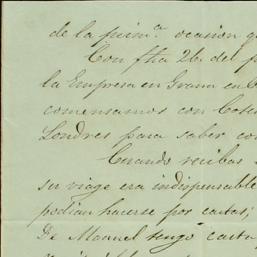 de la prim.ª ocasión q
Con fha 26. del p
la Empresa en Grana en C
comensamos con Coch
Londres para saber co
Cuando recibas
su viage era indispensable
podian hacerse por cartas;
De Manuel tengo carta